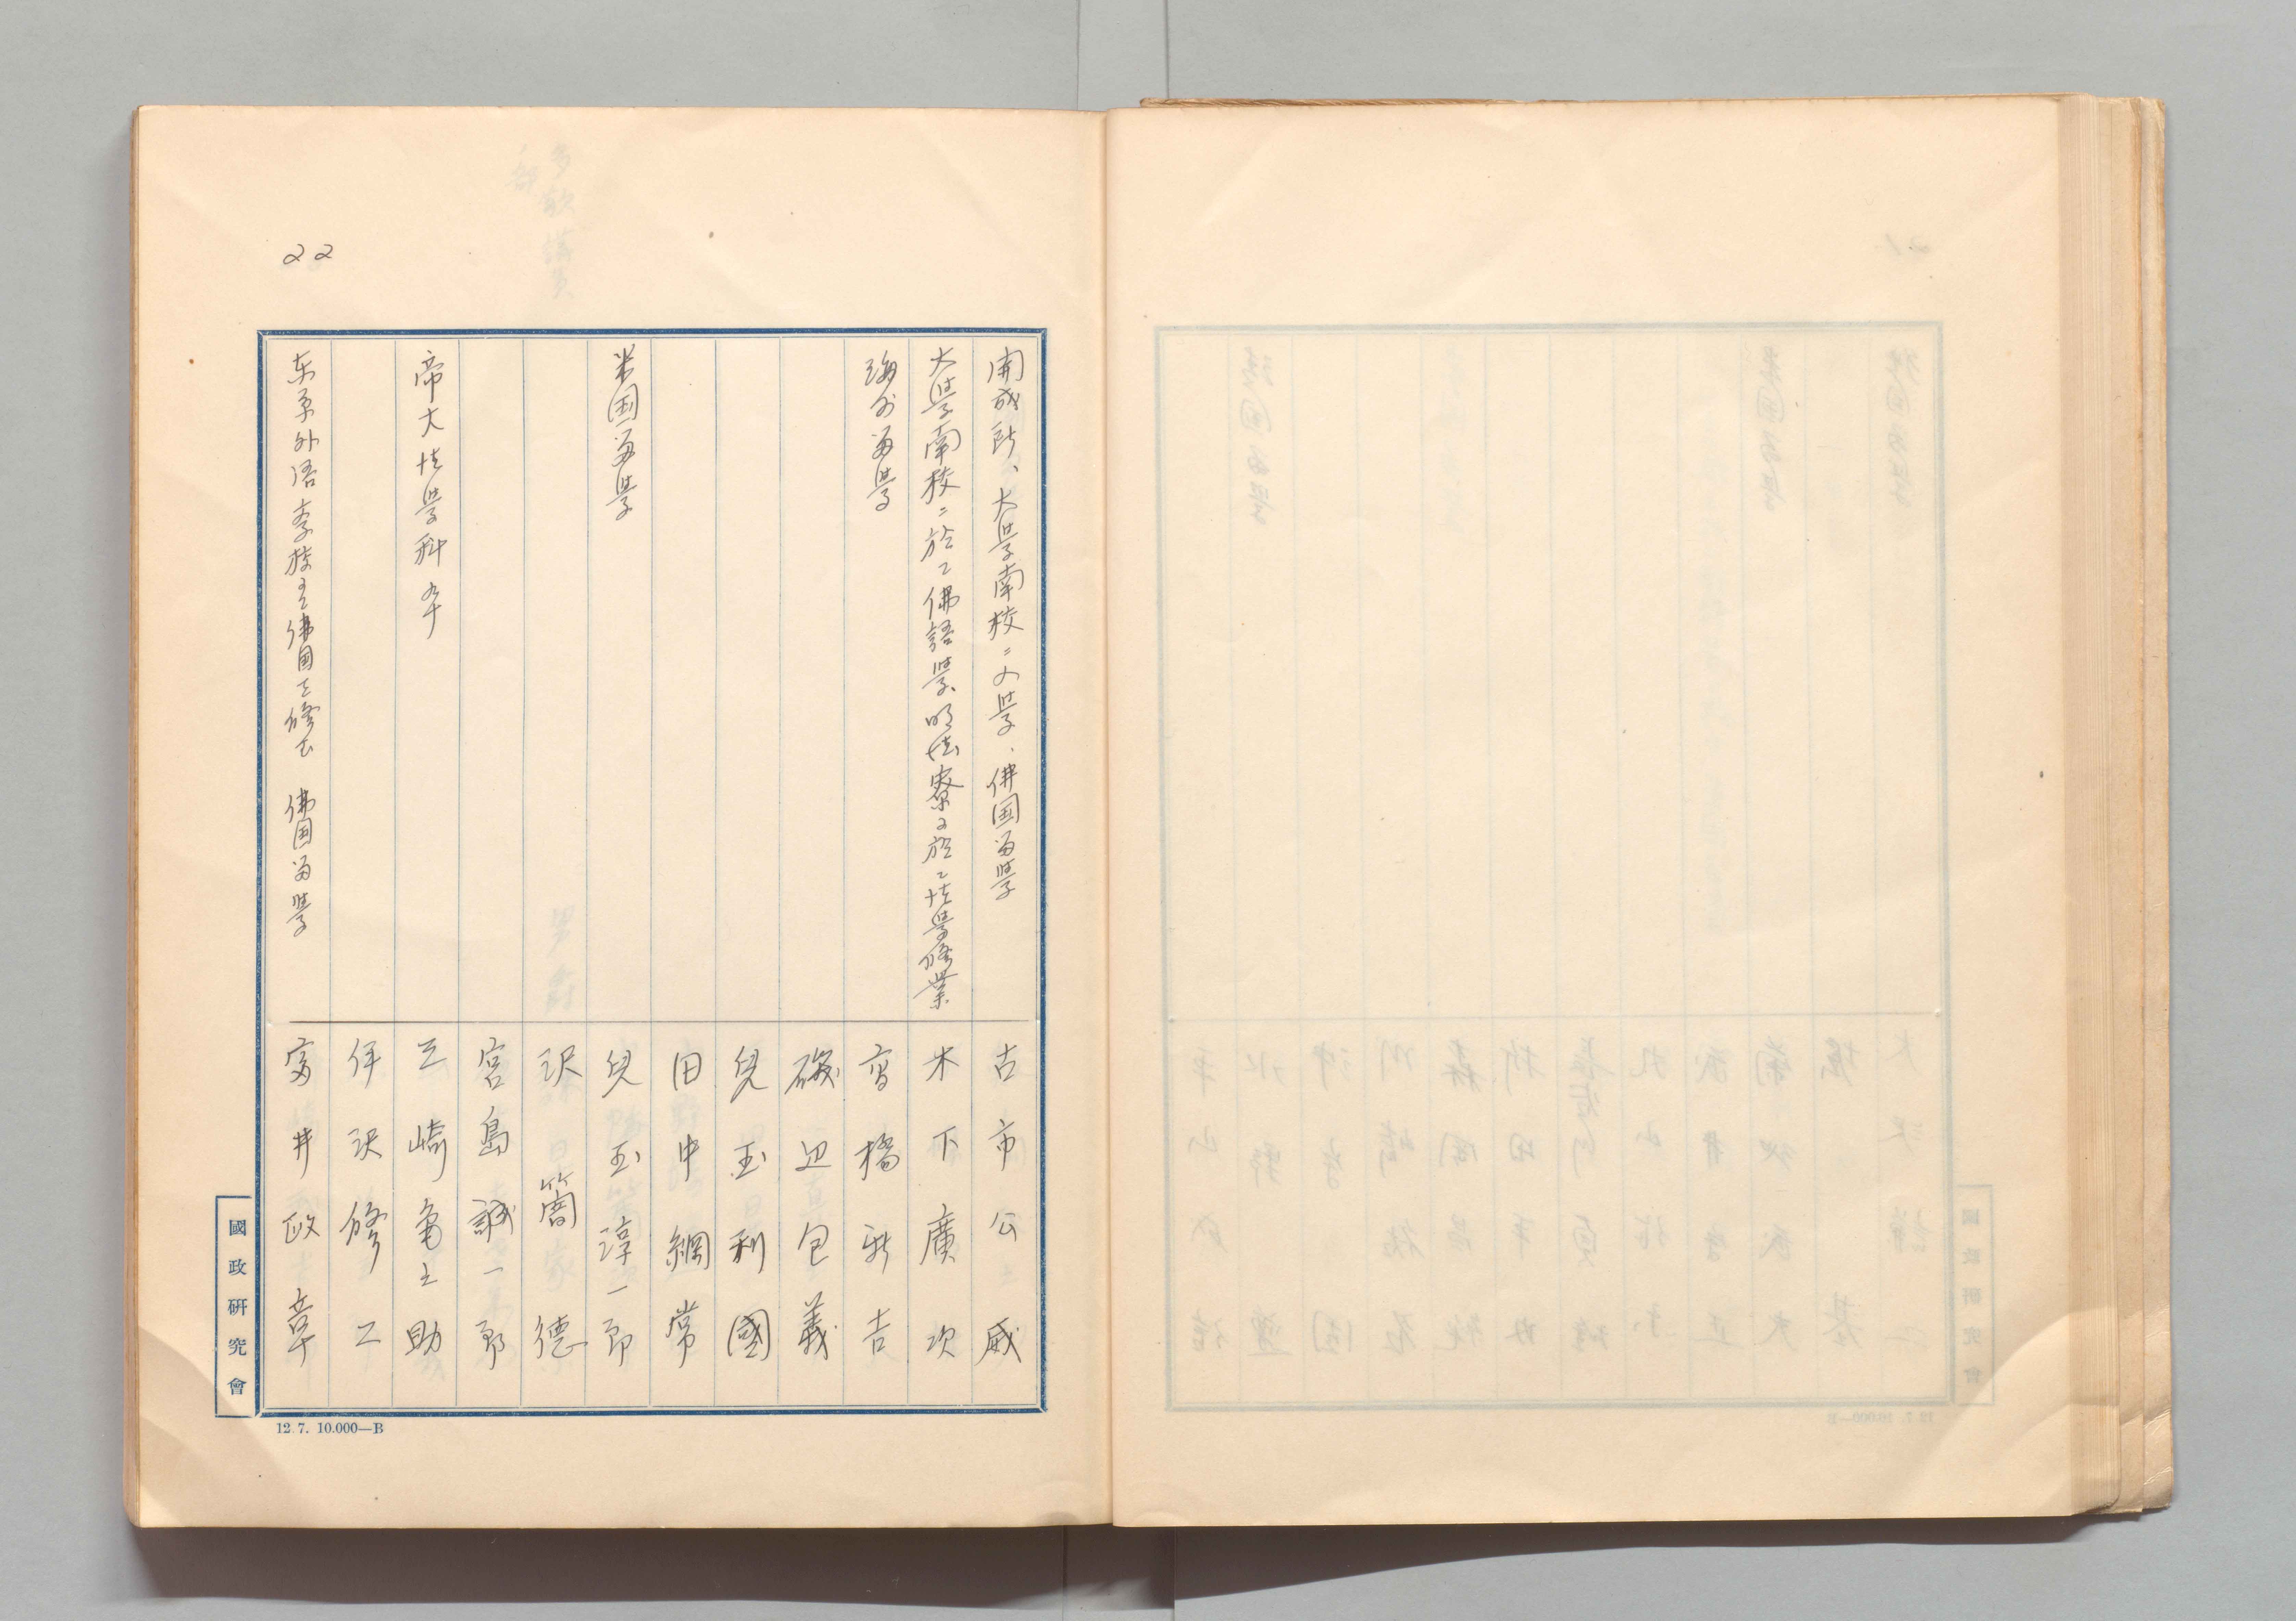 22
開成所、大学南校ニ入学、佛国留学
古市公威
大学南校ニ於て佛語学、明法寮に於て法学修業
木下廣次
海外留学
高橋新吉
磯辺包義
兒玉利國
田中綱常
米国留学
兒玉淳一郎
沢簡德
宮島誠一郎
帝大法学科卒
三崎亀之助
伊沢修二
東京外語学校
佛国留学
富井政章
國政研究會
12.7. 10.000—B